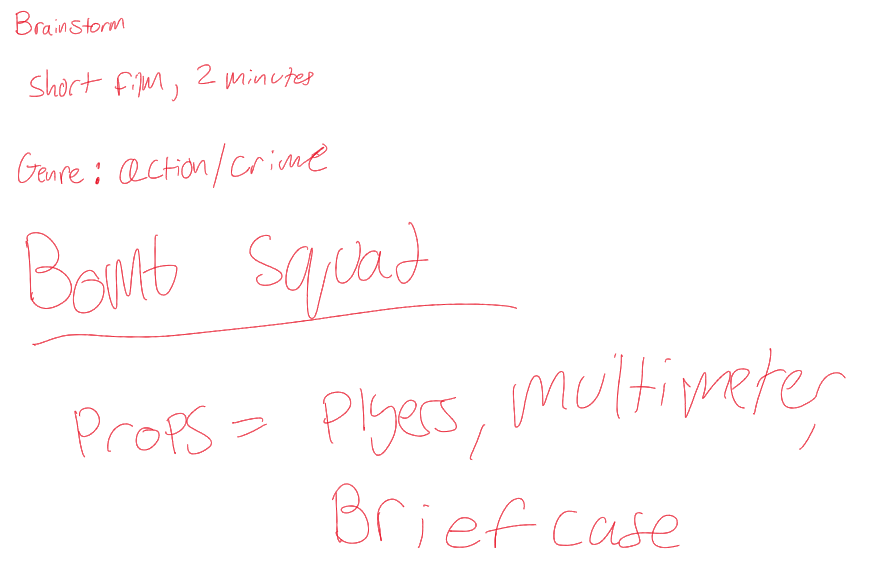 Brainstorm
Short film, 2 minutes
Genre: action/crime
Bomb Squad
Props = Plyers, multimeter,
Briefcase